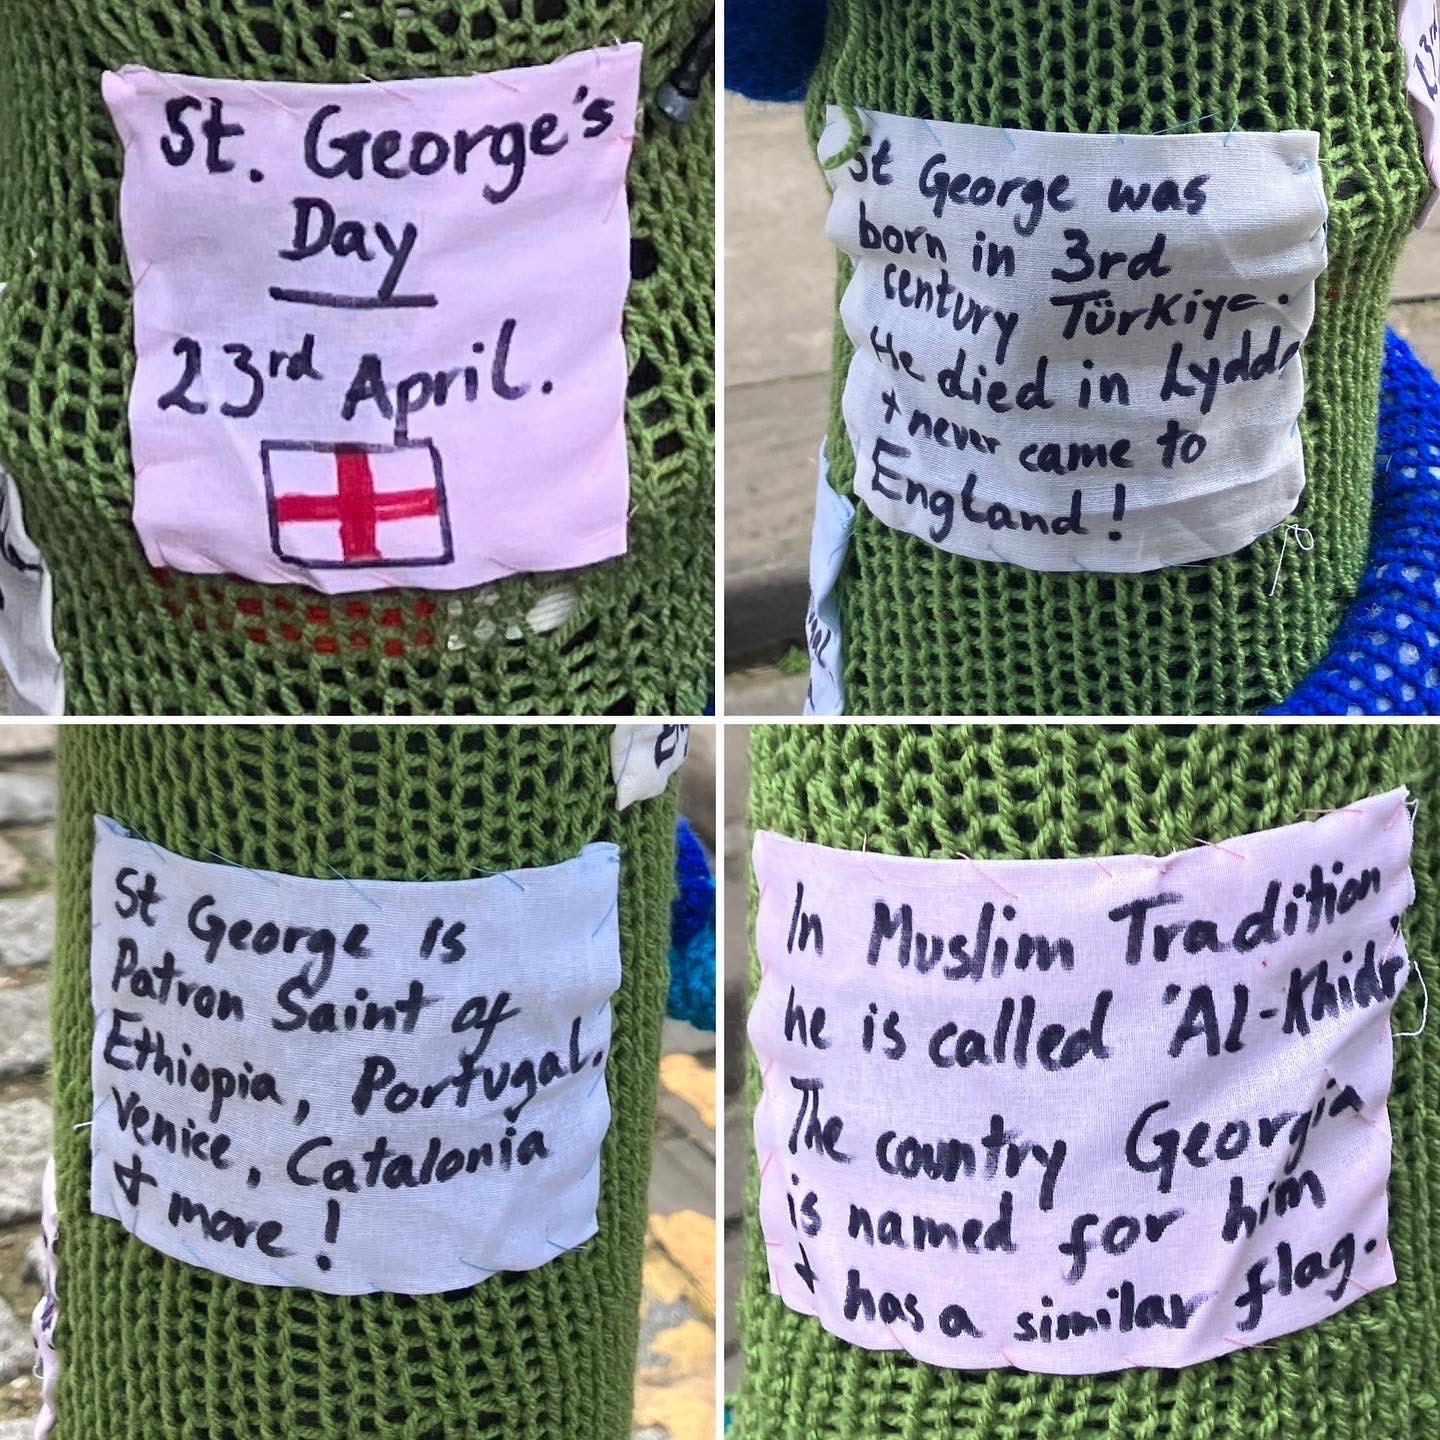 St. George's
Day
23rd April.
St George was
born in 3rd
century Türkiye.
He died in Lydda
+ never came to
England!
St George is
Patron Saint of
Ethiopia, Portugal.
Venice, Catalonia
+ more!
In Muslim Tradition
he is called 'Al-Khidr'
The country Georgia
is named for him
+ has a similar flag.